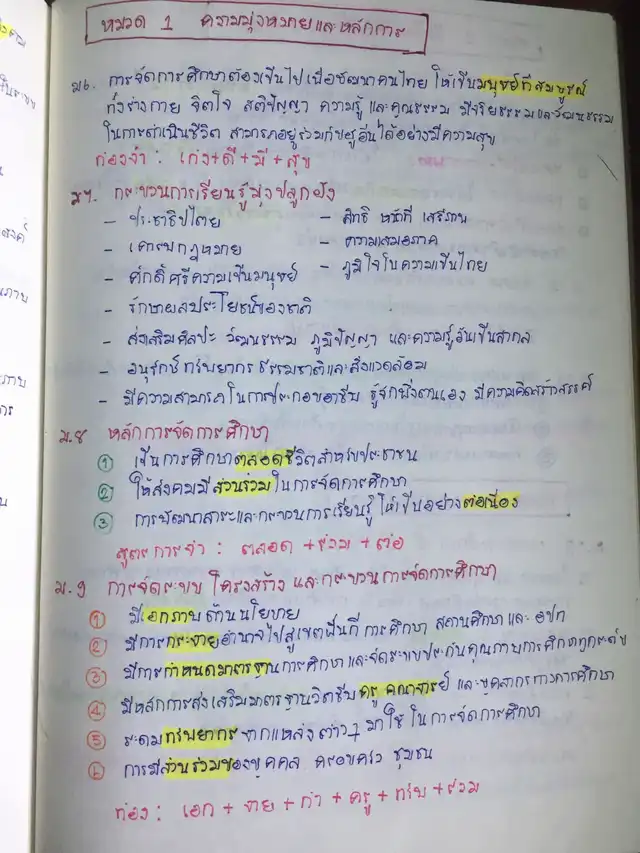 หมวด 1 ความมุ่งหมายและหลักการ
ม๖. การจัดการศึกษาต้องเป็นไปเพื่อพัฒนาคนไทย ให้เป็นมนุษย์ที่สมบูรณ์
ทั้งร่างกาย จิตใจ สติปัญญา ความรู้ และคุณธรรม มีจริยธรรมและวัฒนธรรม
ในการดำเนินชีวิต สามารถอยู่ร่วมกับผู้อื่นได้อย่างมีความสุข
ท่องจำ : เก่ง+ดี+มี+สุข
ม๗. กระบวนการเรียนรู้มุ่งปลูกฝัง
- ประชาธิปไตย - สิทธิ หน้าที่ เสรีภาพ
- เคารพกฎหมาย - ความเสมอภาค
- ศักดิ์ศรีความเป็นมนุษย์ - ภูมิใจในความเป็นไทย
- รักษาผลประโยชน์ของชาติ
- ส่งเสริมศิลปะ วัฒนธรรม ภูมิปัญญา และความรู้อันเป็นสากล
- อนุรักษ์ทรัพยากรธรรมชาติและสิ่งแวดล้อม
- มีความสามารถในการประกอบอาชีพ รู้จักพึ่งตนเอง มีความคิดสร้างสรรค์
ม.๘ หลักการจัดการศึกษา
① เป็นการศึกษาตลอดชีวิตสำหรับประชาชน
② ให้สังคมมีส่วนร่วมในการจัดการศึกษา
③ การพัฒนาสาระและกระบวนการเรียนรู้ ให้เป็นอย่างต่อเนื่อง
สูตรการจำ : ตลอด +ร่วม +ต่อ
ม.๙ การจัดระบบ โครงสร้าง และกระบวนการจัดการศึกษา
① มีเอกภาพด้านนโยบาย
② มีการกระจายอำนาจไปสู่เขตพื้นที่การศึกษา สถานศึกษาและ อปท
③ มีการกำหนดมาตรฐานการศึกษา และจัดระบบประกันคุณภาพการศึกษาทุกระดับ
④ มีหลักการส่งเสริมมาตรฐานวิชาชีพครู คณาจารย์ และบุคลากรทางการศึกษา
⑤ ระดมทรัพยากรจากแหล่งต่างๆ มาใช้ในการจัดการศึกษา
๖ การมีส่วนร่วมของบุคคล ครอบครัว ชุมชน
ท่อง : เอก + จาย + กำ + ครู + ทรัพ + ร่วม